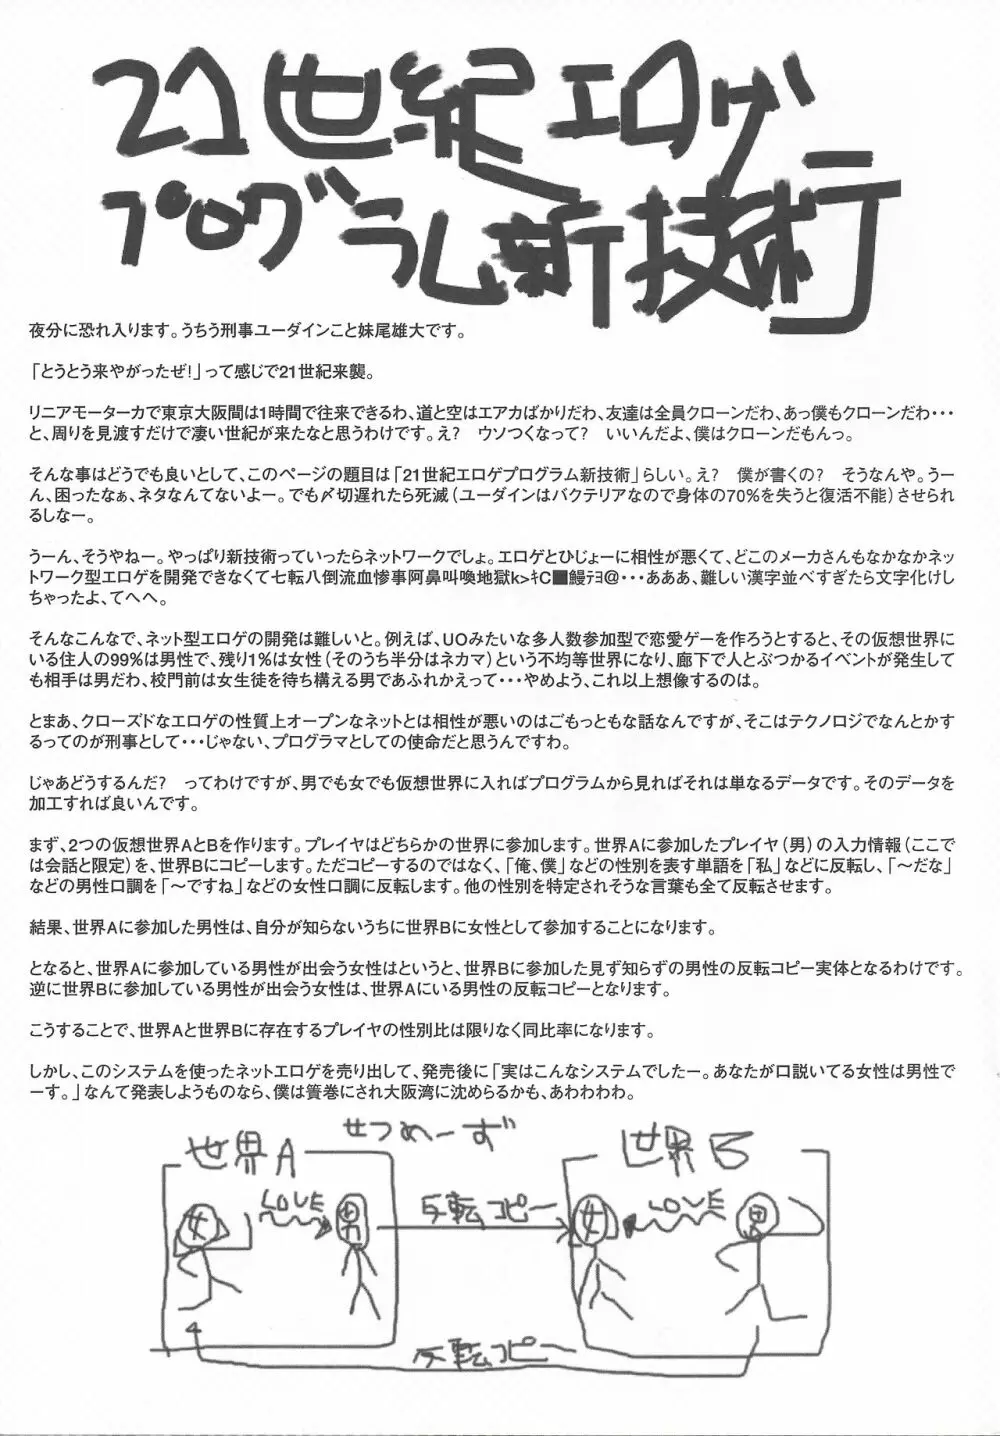 21世紀エロゲ
プログラム新技術
夜分に恐れ入ります。うちう刑事ユーダインこと妹尾雄大です。
「とうとう来やがったぜ!」って感じで21世紀来襲。
リニアモーターカで東京大阪間は1時間で往来できるわ、道と空はエアカばかりだわ、友達は全員クローンだわ、あっ僕もクローンだわ・・・
と、周りを見渡すだけで凄い世紀が来たなと思うわけです。え? ウソつくなって? いいんだよ、僕はクローンだもんっ。
そんな事はどうでも良いとして、このページの題目は「21世紀エロゲプログラム新技術」らしい。え? 僕が書くの? そうなんや。うー
ん、困ったなぁ、ネタなんてないよー。でも〆切遅れたら死滅(ユーダインはバクテリアなので身体の70%を失うと復活不能)させられ
るしなー。
うーん、そうやねー。やっぱり新技術っていったらネットワークでしょ。エロゲとひじょーに相性が悪くて、どこのメーカさんもなかなかネッ
トワーク型エロゲを開発できなくて七転八倒流血惨事阿鼻叫喚地獄k>ｷC■鰻ﾃﾖ@・・・あああ、難しい漢字並べすぎたら文字化けし
ちゃったよ、てへへ。
そんなこんなで、ネット型エロゲの開発は難しいと。例えば、UOみたいな多人数参加型で恋愛ゲーを作ろうとすると、その仮想世界に
いる住人の99%は男性で、残り1%は女性(そのうち半分はネカマ)という不均等世界になり、廊下で人とぶつかるイベントが発生して
も相手は男だわ、校門前は女生徒を待ち構える男であふれかえって・・・やめよう、これ以上想像するのは。
とまあ、クローズドなエロゲの性質上オープンなネットとは相性が悪いのはごもっともな話なんですが、そこはテクノロジでなんとかす
るってのが刑事として・・・じゃない、プログラマとしての使命だと思うんですわ。
じゃあどうするんだ? ってわけですが、男でも女でも仮想世界に入ればプログラムから見ればそれは単なるデータです。そのデータを
加工すれば良いんです。
まず、2つの仮想世界AとBを作ります。プレイヤはどちらかの世界に参加します。世界Aに参加したプレイヤ(男)の入力情報(ここで
は会話と限定)を、世界Bにコピーします。ただコピーするのではなく、「俺、僕」などの性別を表す単語を「私」などに反転し、「〜だな」
などの男性口調を「〜ですね」などの女性口調に反転します。他の性別を特定されそうな言葉も全て反転させます。
結果、世界Aに参加した男性は、自分が知らないうちに世界Bに女性として参加することになります。
となると、世界Aに参加している男性が出会う女性はというと、世界Bに参加した見ず知らずの男性の反転コピー実体となるわけです。
逆に世界Bに参加している男性が出会う女性は、世界Aにいる男性の反転コピーとなります。
こうすることで、世界Aと世界Bに存在するプレイヤの性別比は限りなく同比率になります。
しかし、このシステムを使ったネットエロゲを売り出して、発売後に「実はこんなシステムでしたー。あなたが口説いてる女性は男性で
ーす。」なんて発表しようものなら、僕は簀巻にされ大阪湾に沈めらるかも、あわわわわ。
せつめーず
世界A
世界B
LOVE
女
男
反転コピー
女
LOVE
男
反転コピー